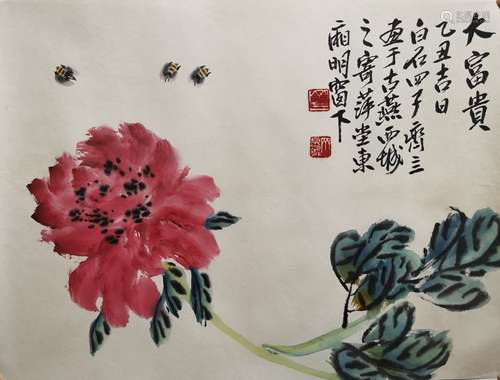 大富貴
乙丑吉日
白石四子齊三
畫于古燕西城
之寄萍堂東
廂明窗下